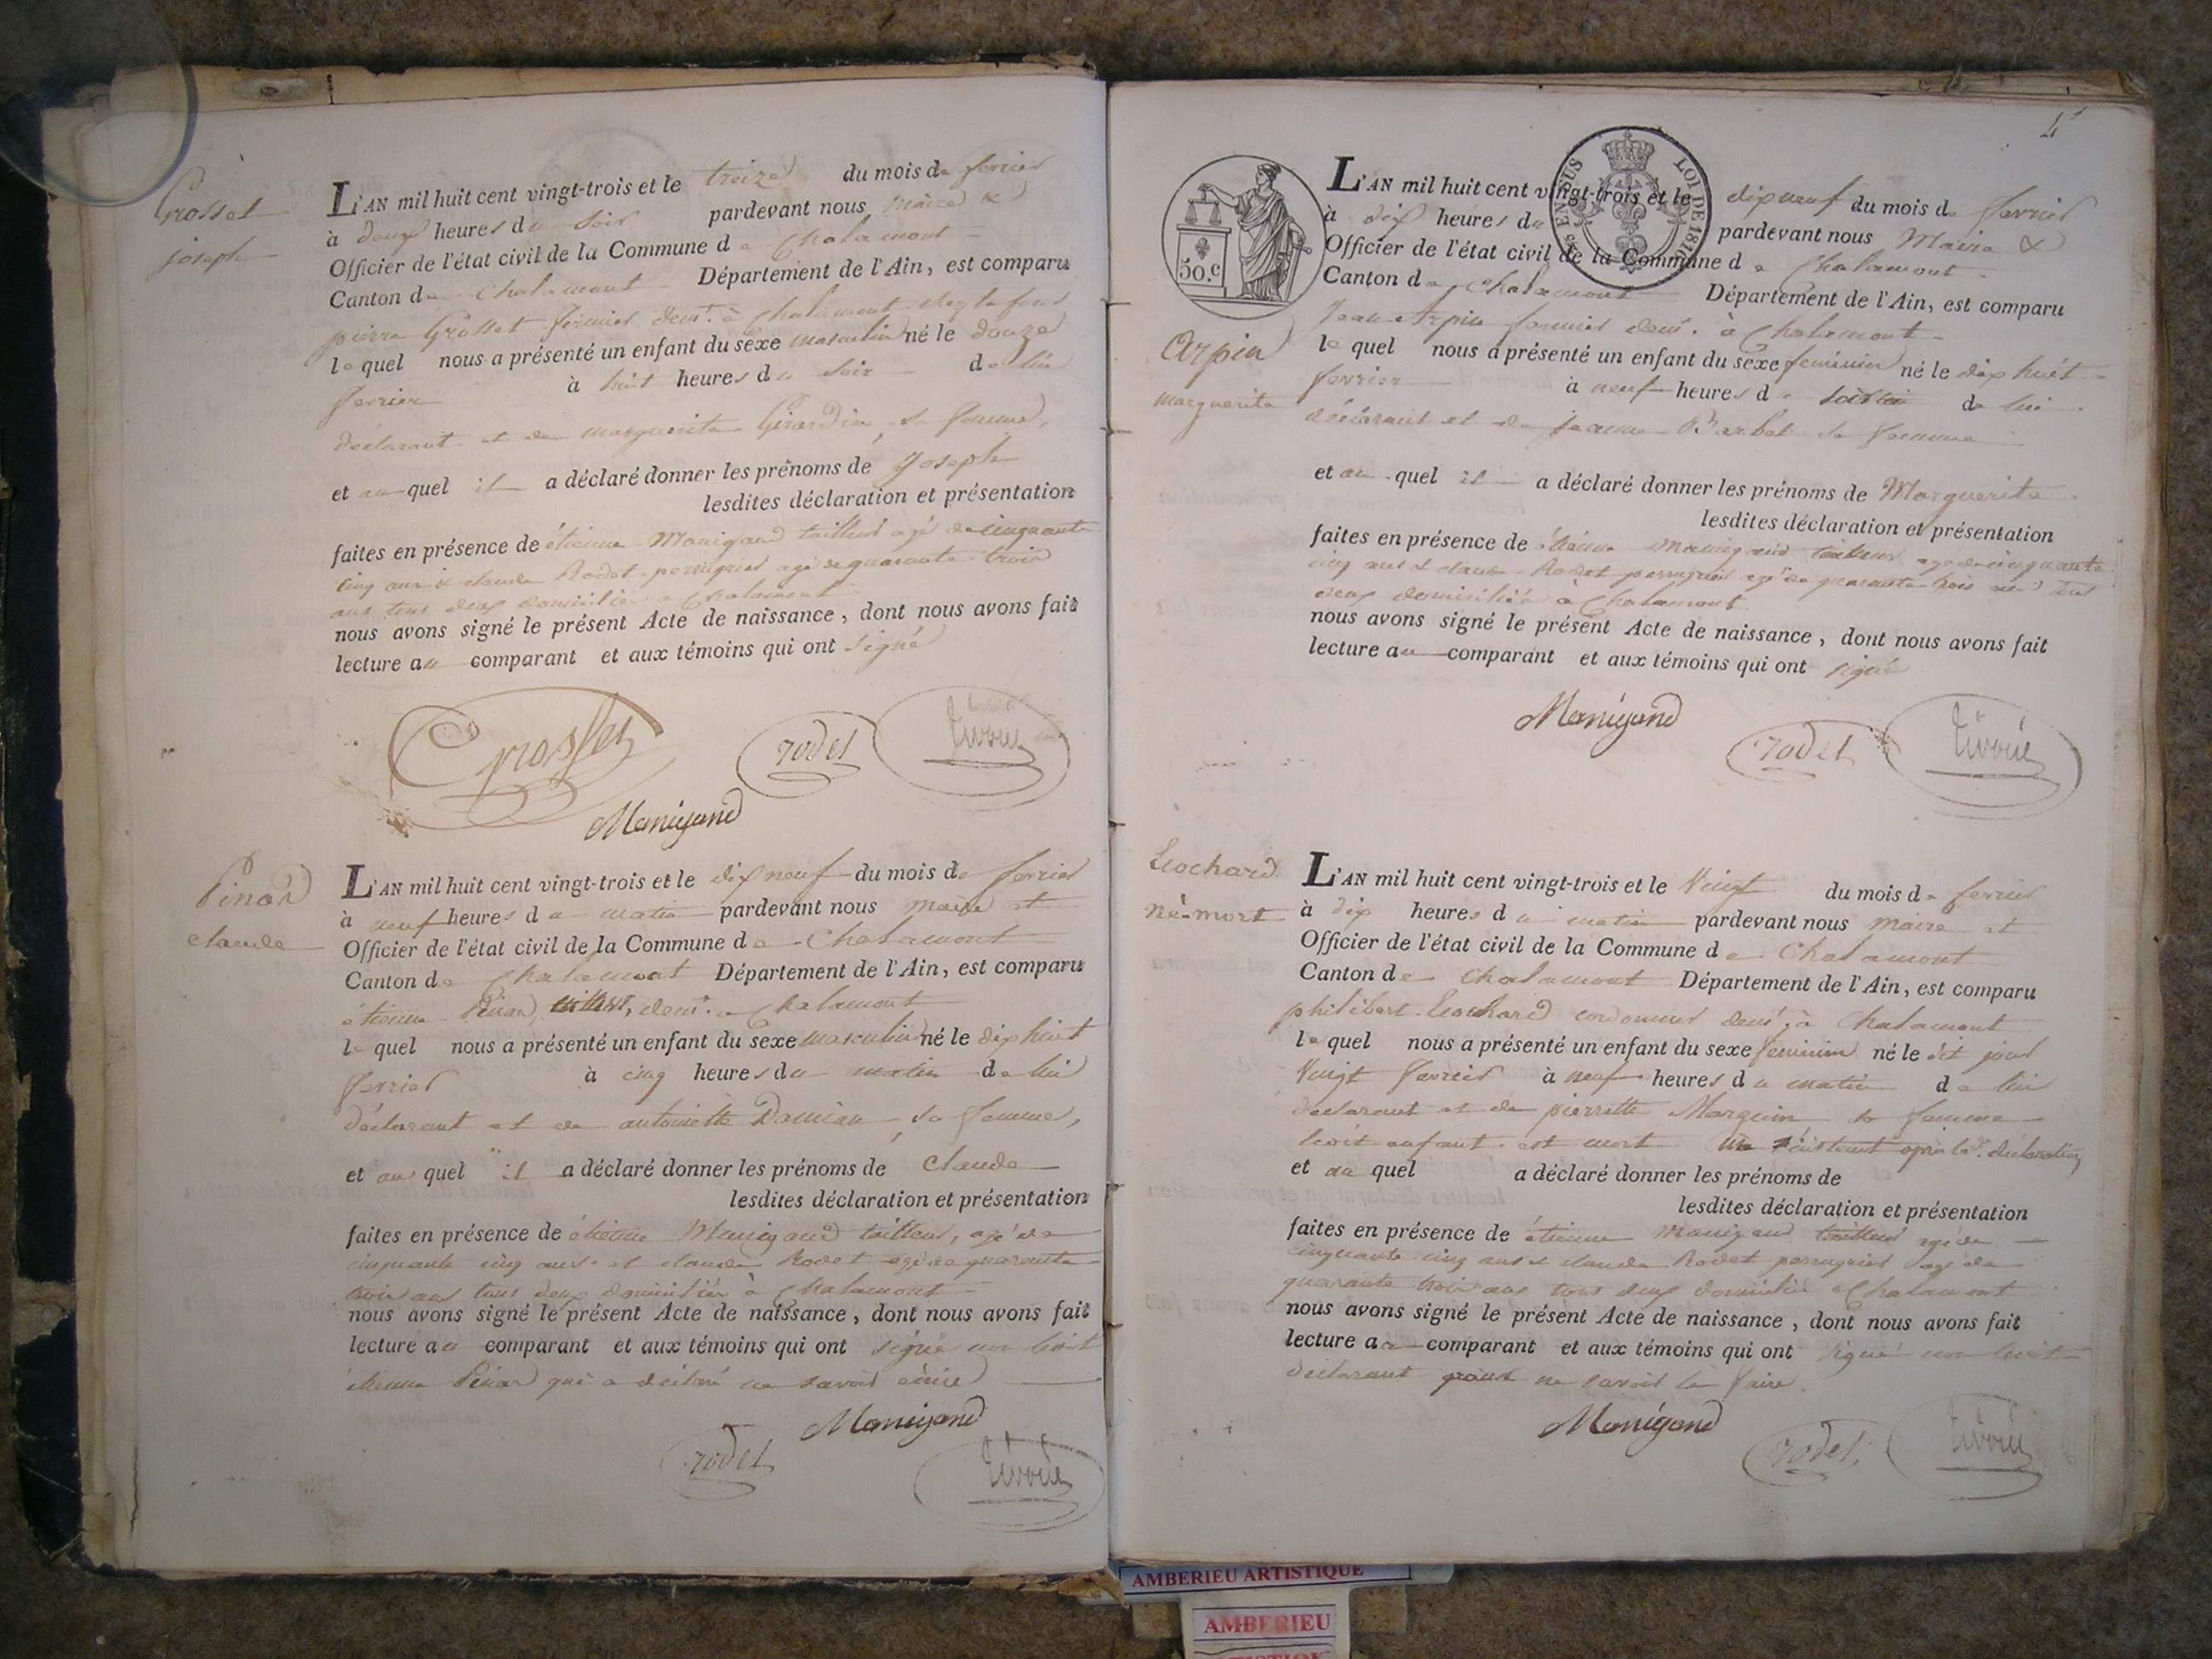 Grosset
joseph
L'AN mil huit cent vingt-trois et le treize du mois de fevrier
à deux heures du soir pardevant nous maire &
Officier de l'état civil de la Commune de Chalamont
Canton de Chalamont Département de l'Ain, est comparu
pierre Grosset fermier demt. à Chalamont
lequel nous a présenté un enfant du sexe masculin né le douze
fevrier à huit heures du soir de lui
déclarant et de marguerite Girardin, sa femme,
et au quel il a déclaré donner les prénoms de Joseph
lesdites déclaration et présentation
faites en présence de étienne Manigand tailleur agé de cinquante
cinq ans & claude Rodet perruquier agé de quarante trois
ans tous deux domiciliés à Chalamont
nous avons signé le présent Acte de naissance, dont nous avons fait
lecture au comparant et aux témoins qui ont signé
Grosset rodet
Manigand
Pinad
claude
L'AN mil huit cent vingt-trois et le dix neuf du mois de fevrier
à neuf heures du matin pardevant nous maire et
Officier de l'état civil de la Commune de Chalamont
Canton de Chalamont Département de l'Ain, est comparu
étienne Pinad, demt. à Chalamont
lequel nous a présenté un enfant du sexe masculin né le dix huit
fevrier à cinq heures du matin de lui
déclarant et de antoinette Damian, sa femme,
et au quel il a déclaré donner les prénoms de Claude
lesdites déclaration et présentation
faites en présence de étienne Manigand tailleur, agé de
cinquante cinq ans et claude Rodet agé de quarante
trois ans tous deux domiciliés à Chalamont
nous avons signé le présent Acte de naissance, dont nous avons fait
lecture au comparant et aux témoins qui ont signé non ledit
étienne Pinad qui a déclaré ne savoir écrire
Manigand
rodet
4
50.c
EN SUS
LOI DE 1816
L'AN mil huit cent vingt-trois et le dix neuf du mois de fevrier
à dix heures du pardevant nous Maire &
Officier de l'état civil de la Commune de Chalamont
Canton de Chalamont Département de l'Ain, est comparu
Jean Arpin fermier demt. à Chalamont
Arpin
marguerite
lequel nous a présenté un enfant du sexe feminin né le dix huit
fevrier à neuf heures du de lui
déclarant et de jeanne Barbet sa femme
et au quel il a déclaré donner les prénoms de Marguerite
lesdites déclaration et présentation
faites en présence de étienne Manigand tailleur agé de cinquante
cinq ans & claude Rodet perruquier agé de quarante trois ans tous
deux domiciliés à Chalamont
nous avons signé le présent Acte de naissance, dont nous avons fait
lecture au comparant et aux témoins qui ont signé
Manigand
rodet
Leochard
né-mort
L'AN mil huit cent vingt-trois et le Vingt du mois de fevrier
à dix heures du matin pardevant nous maire et
Officier de l'état civil de la Commune de Chalamont
Canton de Chalamont Département de l'Ain, est comparu
philibert Leochard cordonnier demt. à Chalamont
lequel nous a présenté un enfant du sexe feminin né le dit jour
Vingt fevrier à neuf heures du matin de lui
déclarant et de pierrette Marguin sa femme
ledit enfant est mort un instant après la declaration
et au quel a déclaré donner les prénoms de
lesdites déclaration et présentation
faites en présence de étienne Manigand tailleur agé de
cinquante cinq ans & claude Rodet perruquier agé de
quarante trois ans tous deux domiciliés à Chalamont
nous avons signé le présent Acte de naissance, dont nous avons fait
lecture au comparant et aux témoins qui ont signé non ledit
déclarant pour ne savoir le faire.
Manigand
rodet
AMBERIEU ARTISTIQUE
AMBERIEU